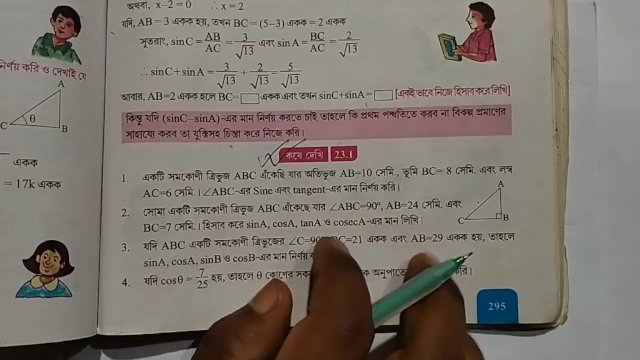 অথবা, x–2 = 0 ∴ x = 2
যদি, AB = 3 একক হয়, তখন BC = (5–3) একক = 2 একক
সুতরাং, sinC = AB/AC = 3/√13 এবং sinA = BC/AC = 2/√13
∴ sinC + sinA = 3/√13 + 2/√13 = 5/√13
আবার, AB=2 একক হলে BC= একক এবং তখন sinC+sinA= [একইভাবে নিজে হিসাব করে লিখি]
কিন্তু যদি (sinC–sinA)-এর মান নির্ণয় করতে চাই তাহলে কি প্রথম পদ্ধতিতে করব না বিকল্প প্রমাণের
সাহায্যে করব তা যুক্তিসহ চিন্তা করে নিজে করি।
নির্ণয় করি ও দেখাই যে
A
C θ B
একক
= 17k একক
কষে দেখি 23.1
1. একটি সমকোণী ত্রিভুজ ABC এঁকেছি যার অতিভুজ AB=10 সেমি., ভূমি BC= 8 সেমি. এবং লম্ব
AC=6 সেমি.। ∠ABC-এর Sine এবং tangent-এর মান নির্ণয় করি।
2. সোমা একটি সমকোণী ত্রিভুজ ABC এঁকেছে যার ∠ABC=90°, AB=24 সেমি. এবং
BC=7 সেমি.। হিসাব করে sinA, cosA, tanA ও cosecA-এর মান লিখি।
A
C B
3. যদি ABC একটি সমকোণী ত্রিভুজের ∠C=90°, BC=21 একক এবং AB=29 একক হয়, তাহলে
sinA, cosA, sinB ও cosB-এর মান নির্ণয়
4. যদি cosθ = 7/25 হয়, তাহলে θ কোণের সকল অনুপাতের করি।
295